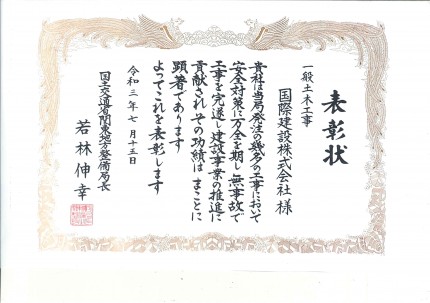 表彰状
一般土木工事
国際建設株式会社 様
貴社は当局発注の幾多の工事において
安全対策に万全を期し無事故で
工事を完遂し建設事業の推進に
貢献されその功績はまことに
顕著であります
よってこれを表彰します
令和三年七月十五日
国土交通省関東地方整備局長
若林伸幸